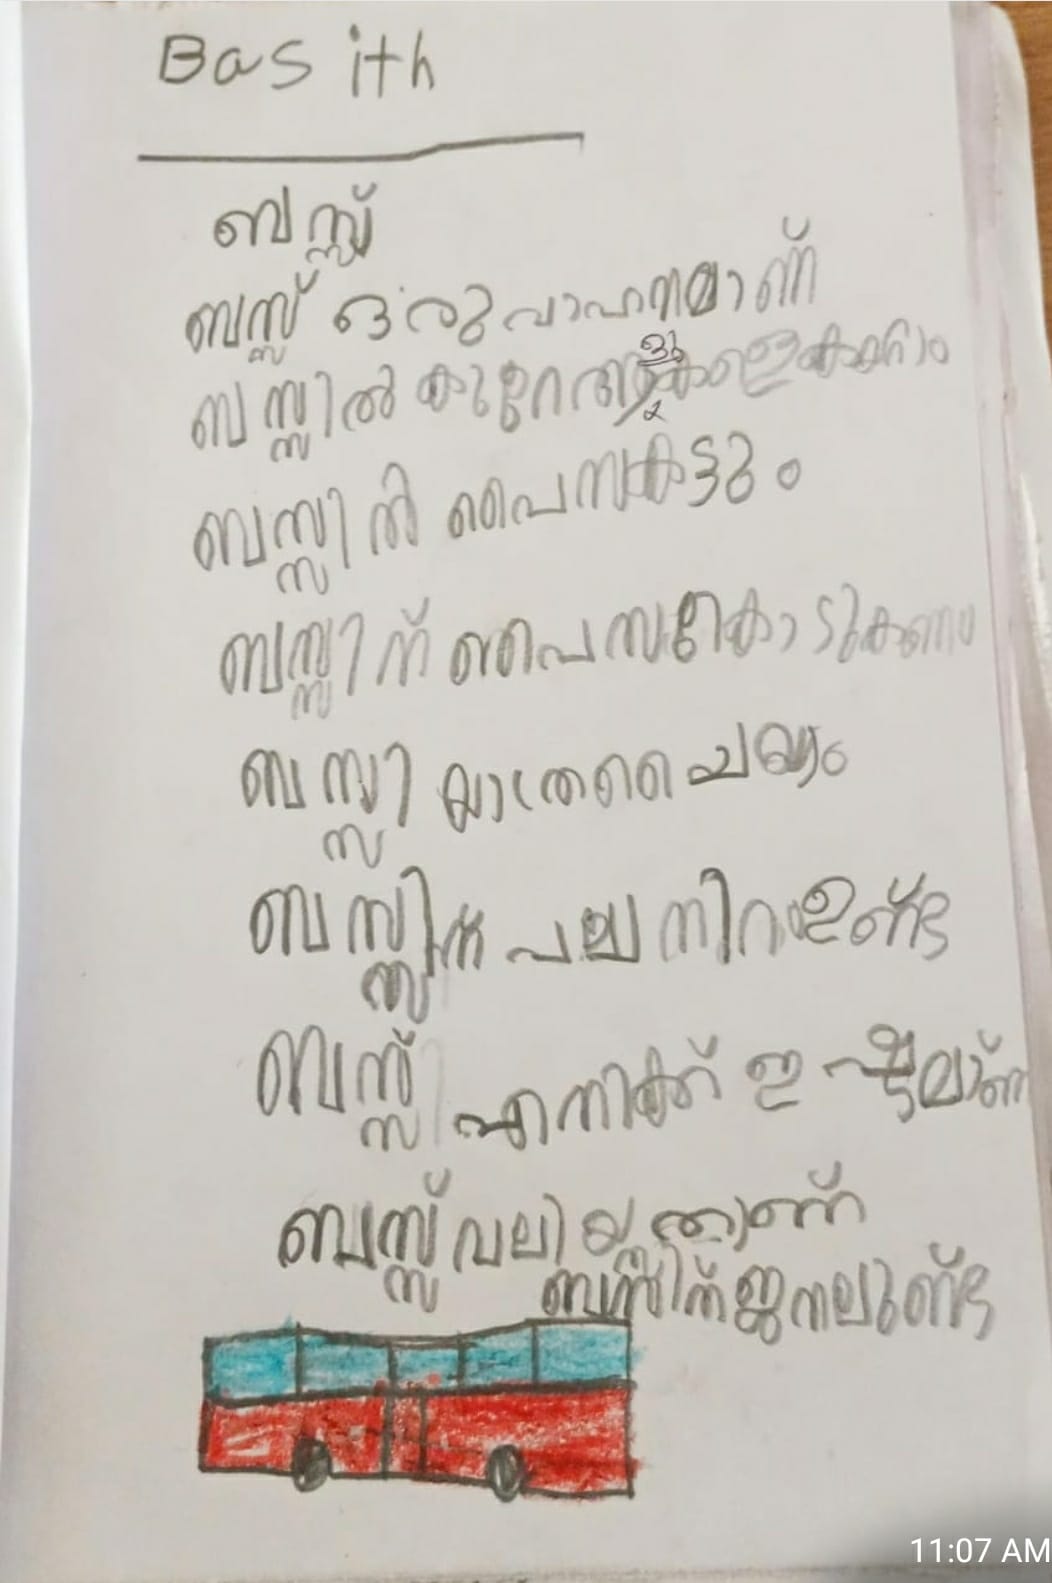 Basith
ബസ്സ്
ബസ്സ് ഒരു വാഹനമാണ്
ബസ്സിൽ കുറേ ആളുകളെ കയറ്റാം
ബസ്സിൽ പൈസ കിട്ടും
ബസ്സിന് പൈസ കൊടുകണം
ബസ്സി യാത്ര ചെയ്യാം
ബസ്സിന് പല നിറംഉണ്ട്
ബസ്സ് എനിക്ക് ഇഷ്ടമാണ്
ബസ്സ് വലിയതാണ്
ബസ്സിന് ജനലുണ്ട്
11:07 AM